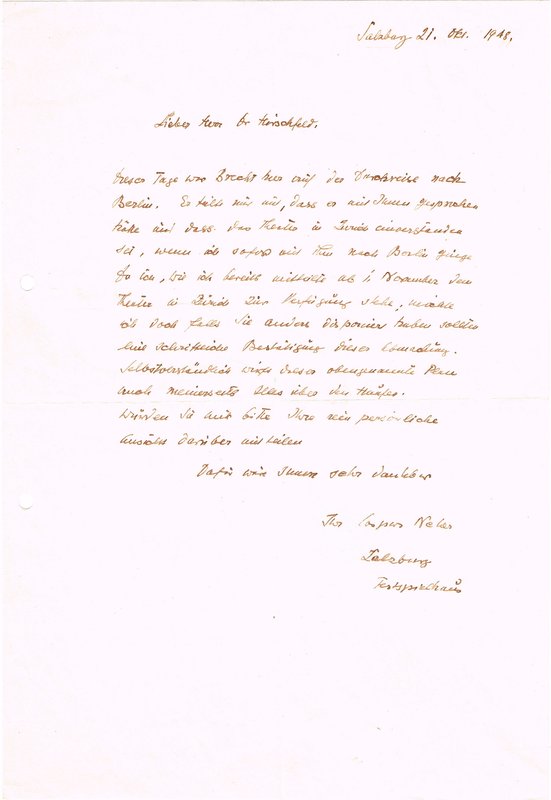 Salzburg 21. Okt. 1948.
Lieber Herr Dr Hirschfeld.
Dieser Tage war Brecht hier auf der Durchreise nach
Berlin. Er teilt mir mit, dass er mit Ihnen gesprochen
habe und dass das Theater in Zürich einverstanden
sei, wenn ich sofort mit ihm nach Berlin ginge
Da ich, wie ich bereits mitteilte ab 1 November dem
Theater in Zürich zur Verfügung stehe, möchte
ich doch falls Sie anders disponiert haben sollten
eine schriftliche Bestätigung dieser
Selbstverständlich wirft dieser obengenannte Plan
auch meinerseits Alles über den Haufen.
Würden Sie mir bitte Ihre rein persönliche
Ansicht darüber mitteilen
Dafür wäre Ihnen sehr dankbar
Ihr Caspar Neher
Salzburg
Festspielhaus